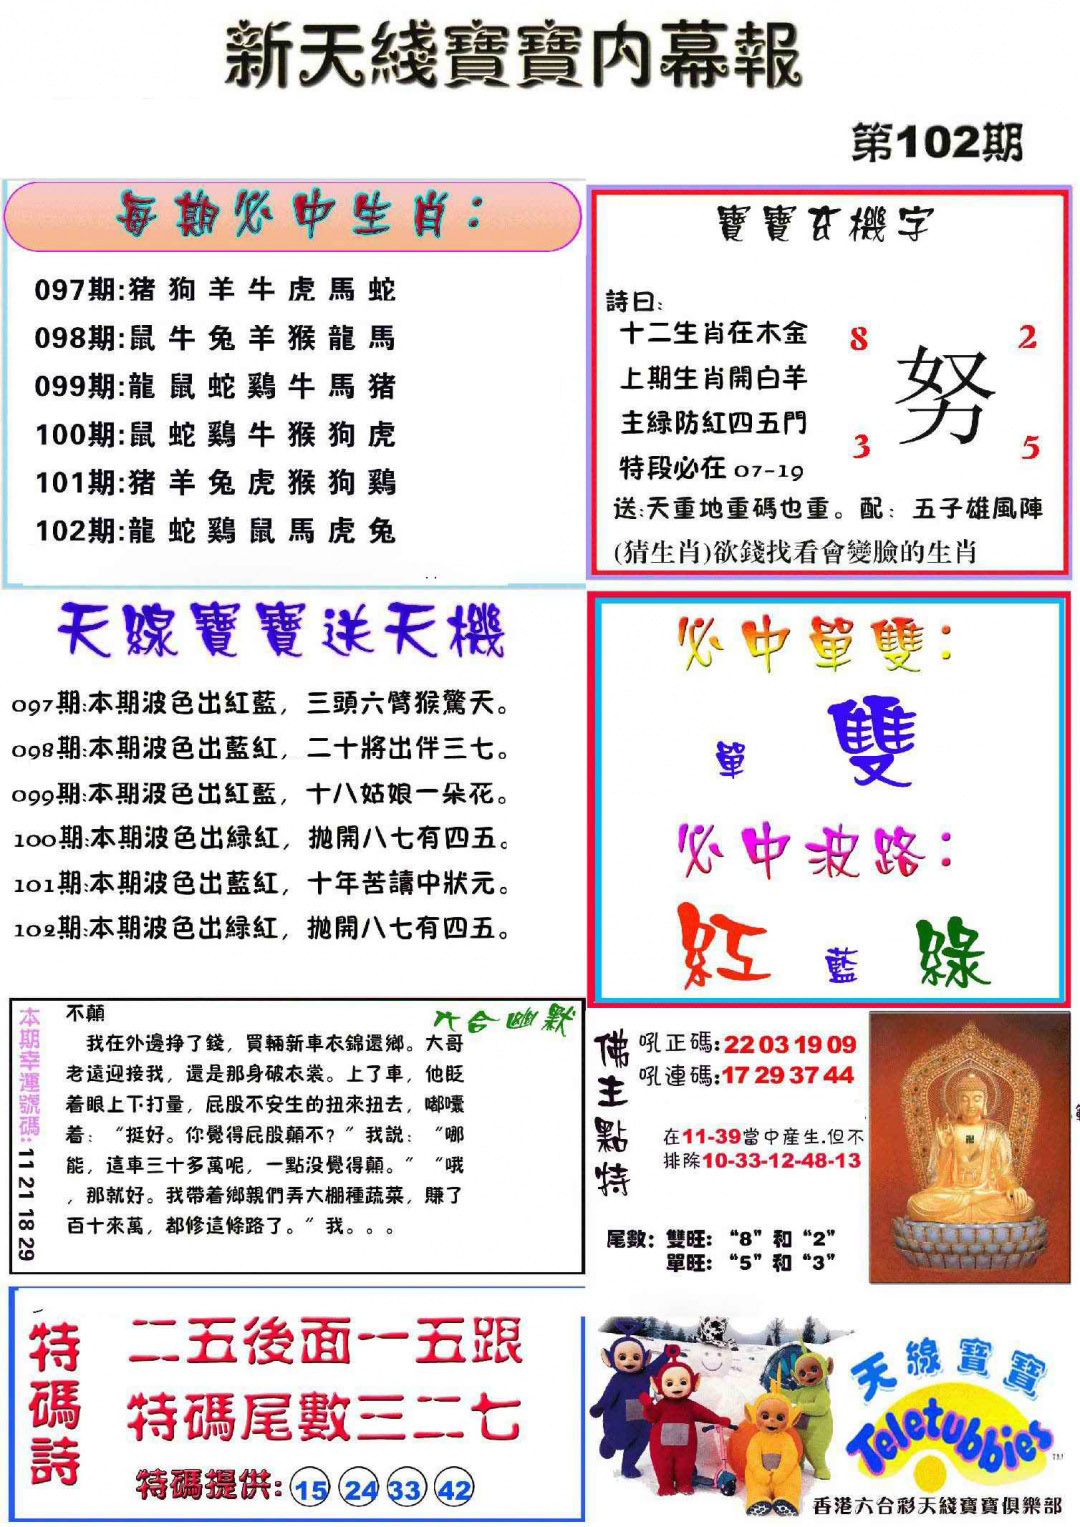 新天綫寶寶内幕報
第102期
每期必中生肖：
097期:猪 狗 羊 牛 虎 馬 蛇
098期:鼠 牛 兔 羊 猴 龍 馬
099期:龍 鼠 蛇 鷄 牛 馬 猪
100期:鼠 蛇 鷄 牛 猴 狗 虎
101期:猪 羊 兔 虎 猴 狗 鷄
102期:龍 蛇 鷄 鼠 馬 虎 兔
寶寶玄機字
詩曰:
十二生肖在木金
上期生肖開白羊
主緑防紅四五門
特段必在 07-19
8 2
努
3 5
送:天重地重碼也重。配：五子雄風陣
(猜生肖)欲錢找看會變臉的生肖
天線寶寶送天機
097期:本期波色出紅藍，三頭六臂猴驚天。
098期:本期波色出藍紅，二十將出伴三七。
099期:本期波色出紅藍，十八姑娘一朵花。
100期:本期波色出緑紅，拋開八七有四五。
101期:本期波色出藍紅，十年苦讀中狀元。
102期:本期波色出緑紅，拋開八七有四五。
必中單雙：
單 雙
必中波路：
紅 藍 綠
本期幸運號碼:11 21 18 29
六合幽默
不顛
我在外邊掙了錢，買輛新車衣錦還鄉。大哥
老遠迎接我，還是那身破衣裳。上了車，他眨
着眼上下打量，屁股不安生的扭來扭去，嘟囔
着：“挺好。你覺得屁股顛不？”我説：“哪
能，這車三十多萬呢，一點没覺得顛。”“哦
，那就好。我帶着鄉親們弄大棚種蔬菜，賺了
百十來萬，都修這條路了。”我。。。
佛主點特
吼正碼:22 03 19 09
吼連碼:17 29 37 44
在11-39當中産生.但不
排除10-33-12-48-13
尾數：雙旺：“8”和“2”
單旺：“5”和“3”
特碼詩
二五後面一五跟
特碼尾數三二七
特碼提供: 15 24 33 42
天線寶寶
Teletubbies
TM
香港六合彩天綫寶寶俱樂部